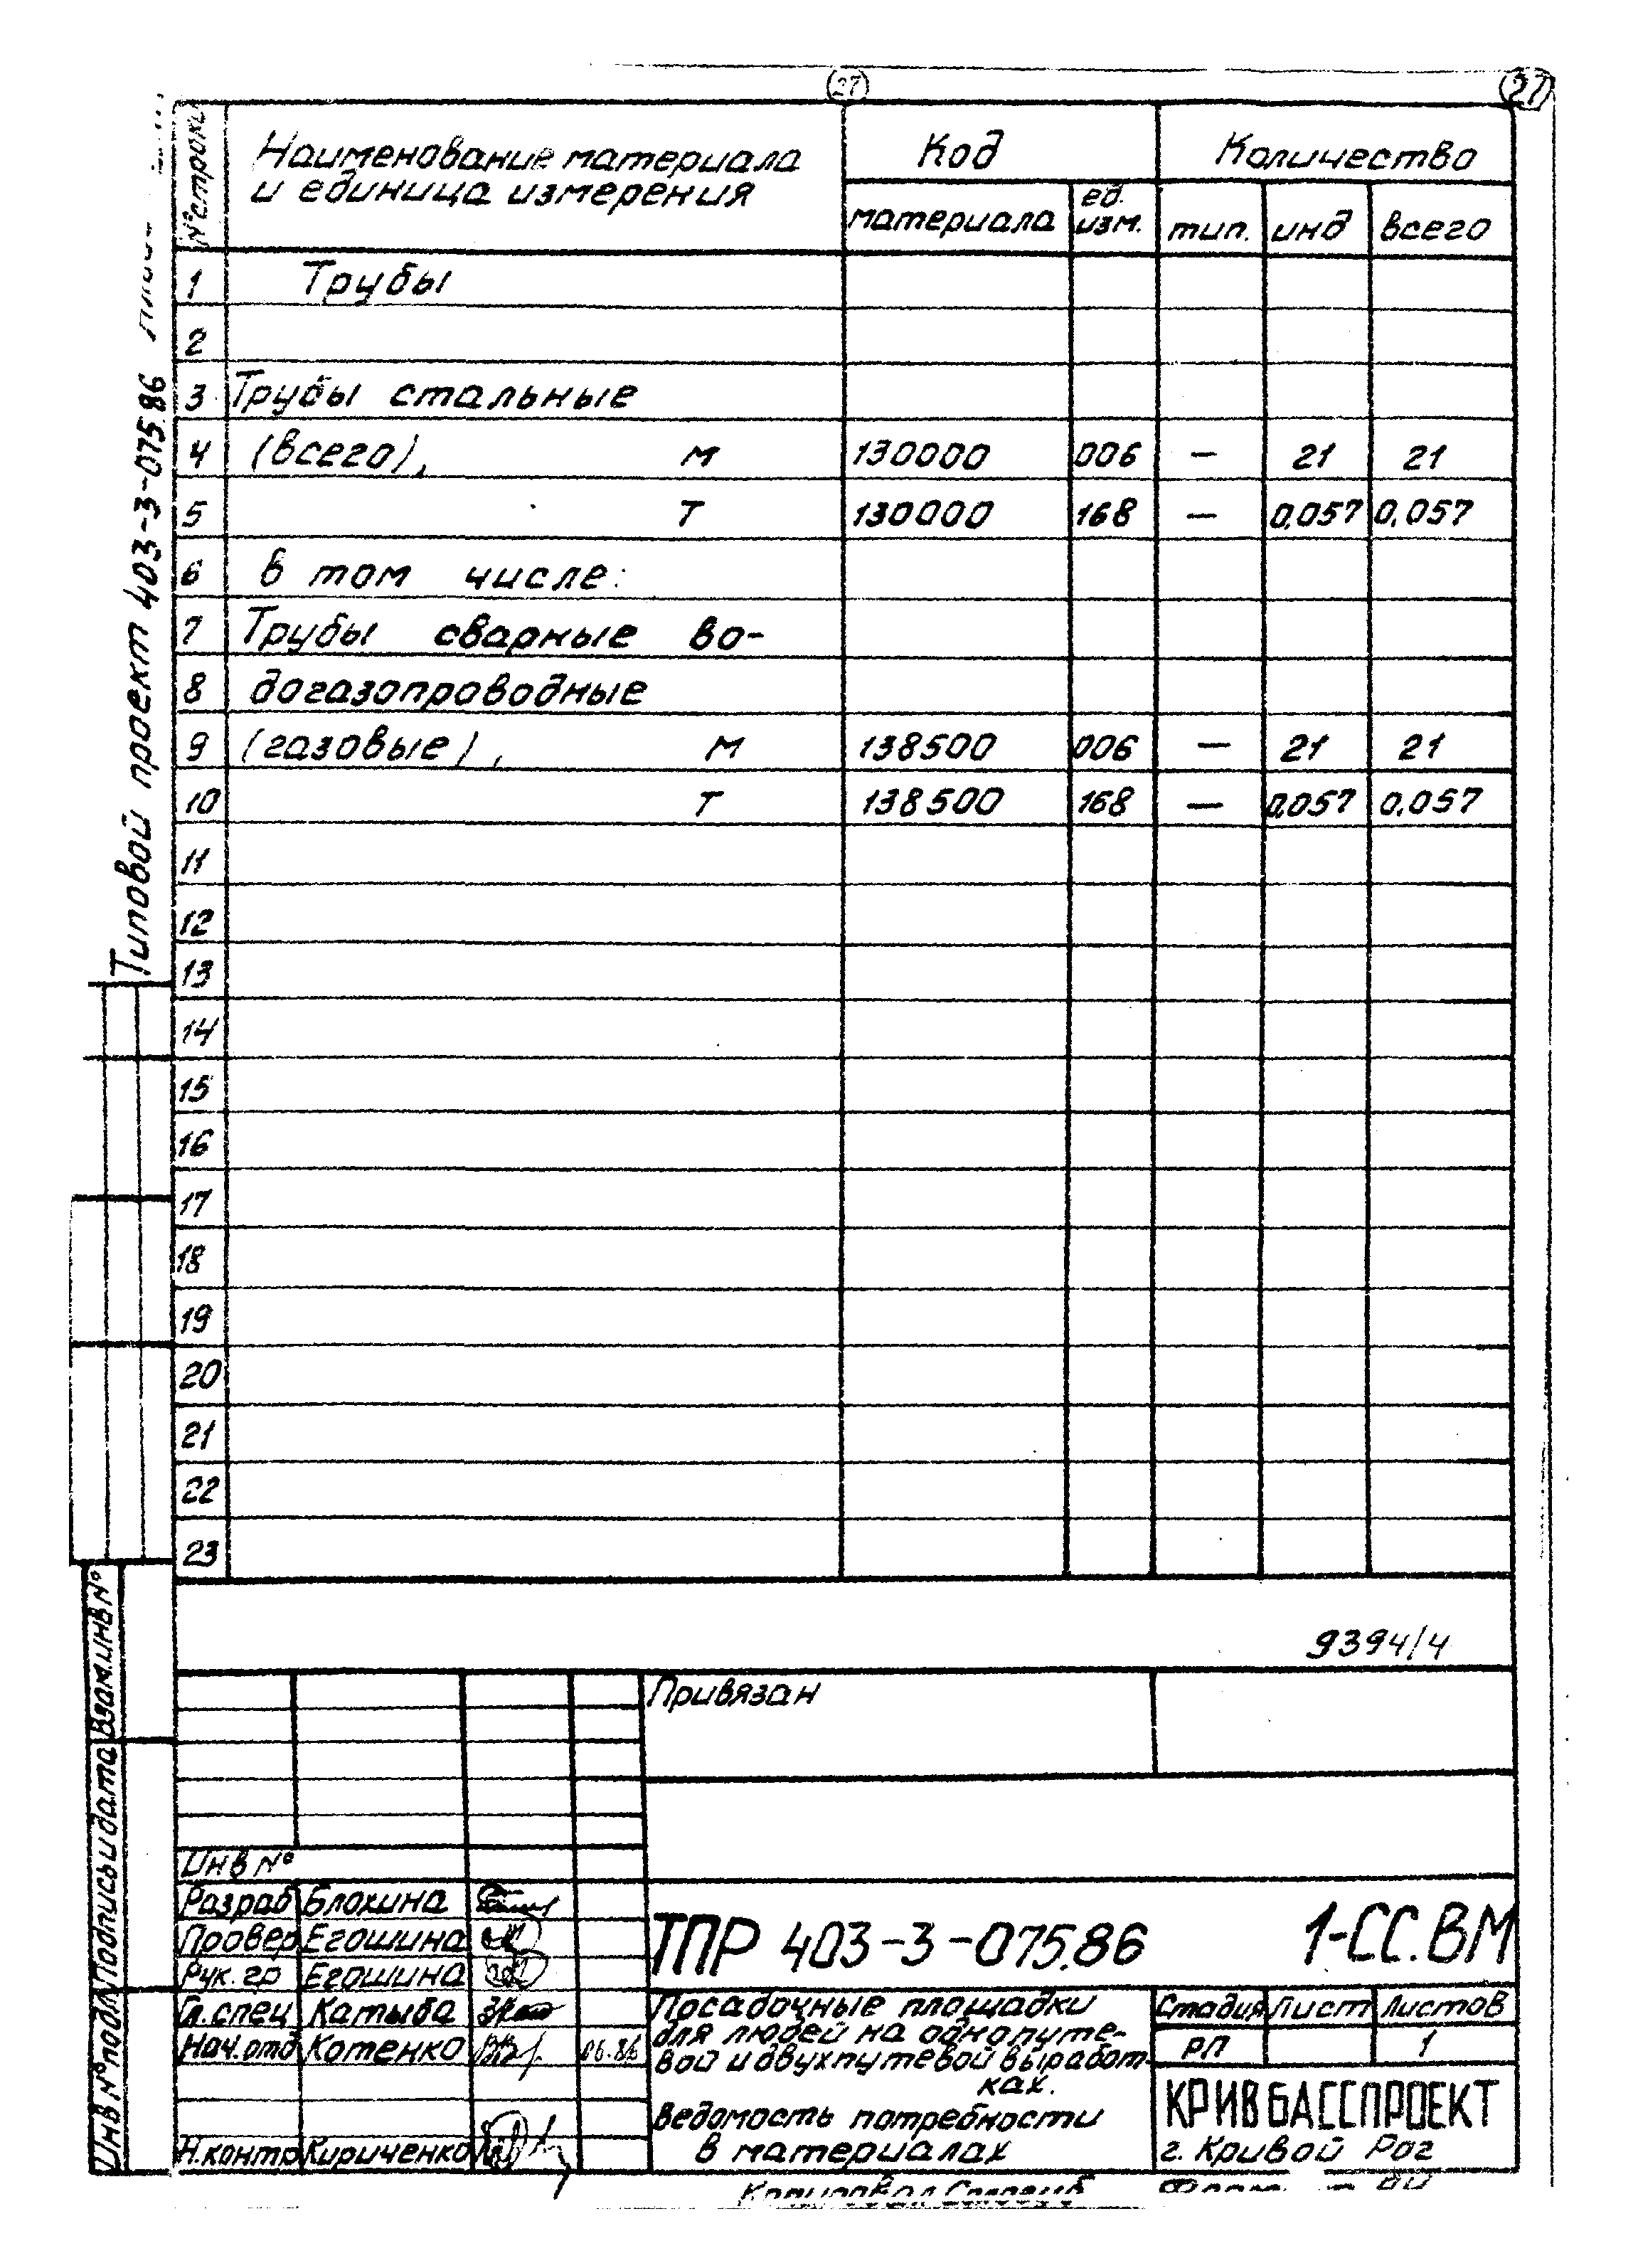 27
27
№ строки
Наименование материала
и единица измерения
Код
Количество
материала
ед.
изм.
тип.
инд
всего
1 Трубы
2
3 Трубы стальные
4 (всего), м 130000 006 — 21 21
5 т 130000 168 — 0,057 0,057
6 в том числе:
7 Трубы сварные во-
8 догазопроводные
9 (газовые), м 138500 006 — 21 21
10 т 138500 168 — 0,057 0,057
11
12
13
14
15
16
17
18
19
20
21
22
23
Типовой проект 403-3-075.86
Взам.инв №
Подпись и дата
Инв № подл
9394/4
Привязан
Инв №
Разраб Блохина
Провер Егошина
Рук. гр Егошина
Гл. спец Катыба
Нач. отд Котенко 06.86
Н.контр Кириченко
ТПР 403-3-075.86 1-СС.ВМ
Посадочные площадки
для людей на однопуте-
вой и двухпутевой выработ-
ках.
Ведомость потребности
в материалах
Стадия Лист Листов
РП 1
КРИВБАССПРОЕКТ
г. Кривой Рог